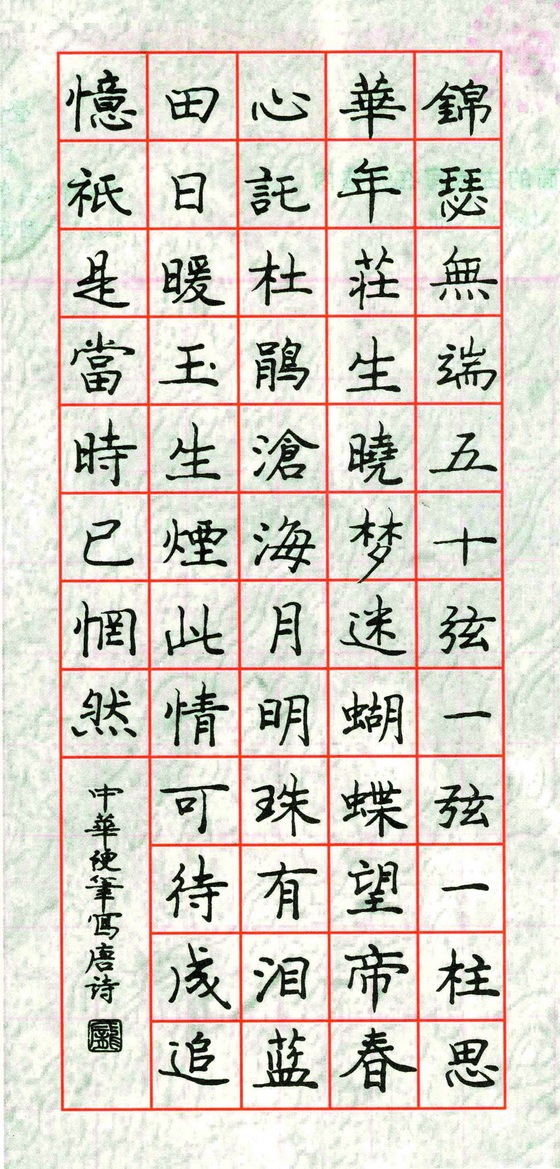 錦瑟無端五十弦一弦一柱思
華年莊生曉梦迷蝴蝶望帝春
心託杜鹃滄海月明珠有泪蓝
田日暖玉生煙此情可待成追
憶祇是當時已惘然
中華硬筆寫唐诗